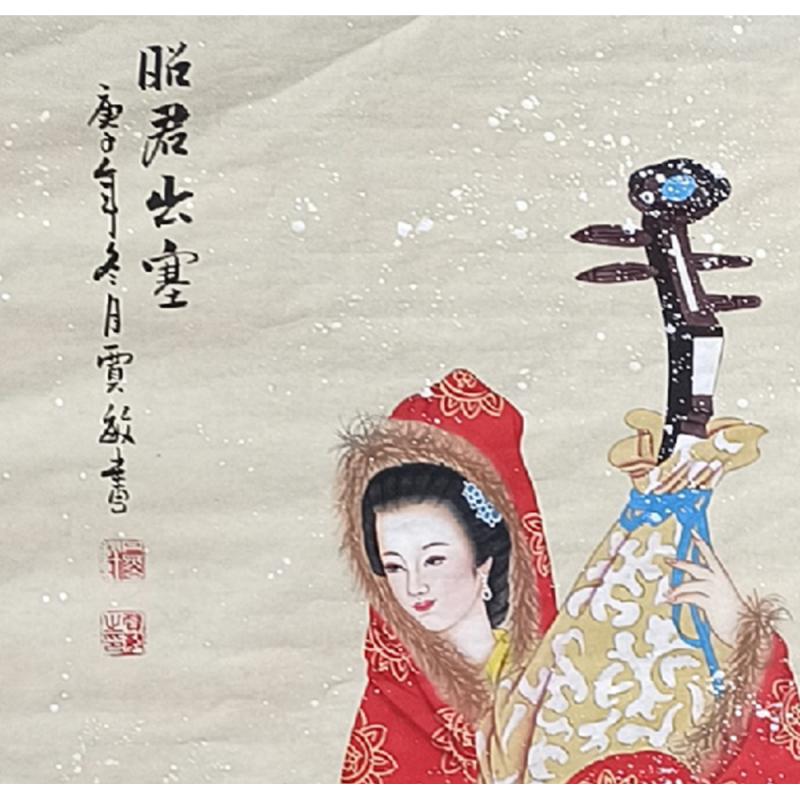 昭君出塞
庚子年冬月贾敏書